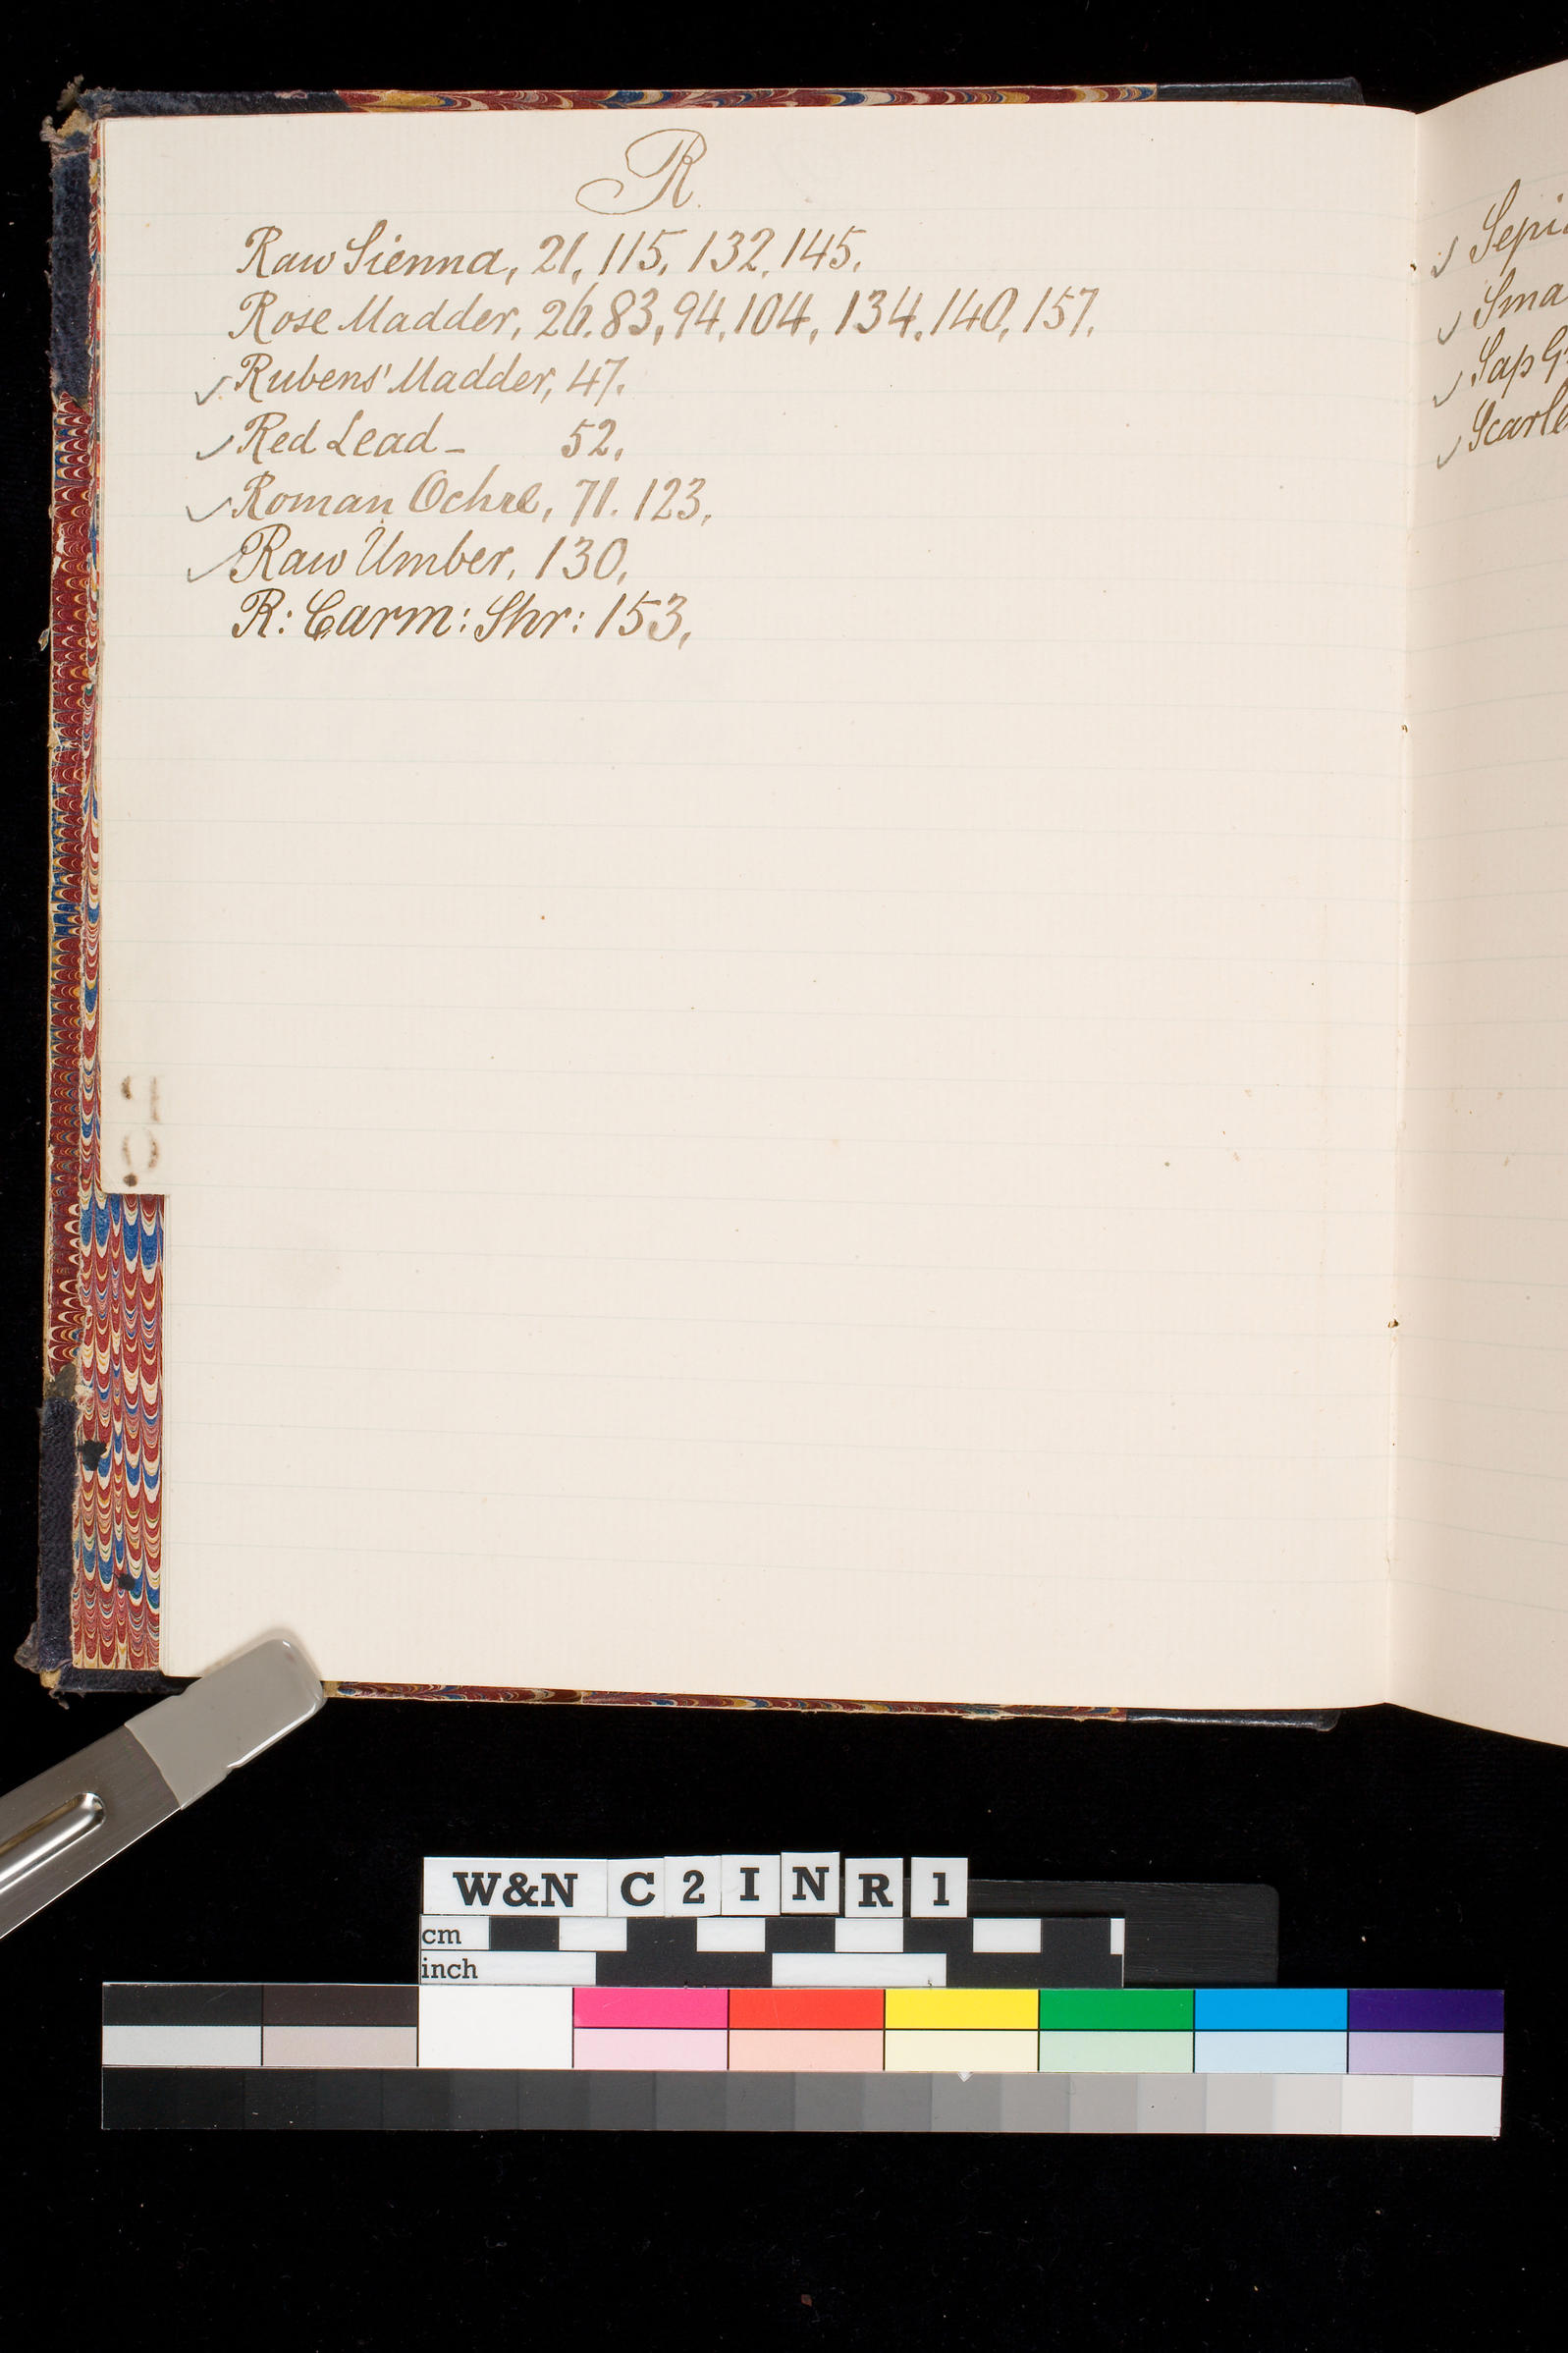 R.
Raw Sienna, 21, 115, 132, 145.
Rose Madder, 26. 83, 94, 104, 134, 140, 157.
✓ Rubens' Madder, 47.
✓ Red Lead – 52.
✓ Roman Ochre, 71. 123.
✓ Raw Umber, 130.
R: Carm: Shr: 153.
✓ Sepi
✓ Sma
✓ Sap G
✓ Scarle
W&N C 2 I N R 1
cm
inch